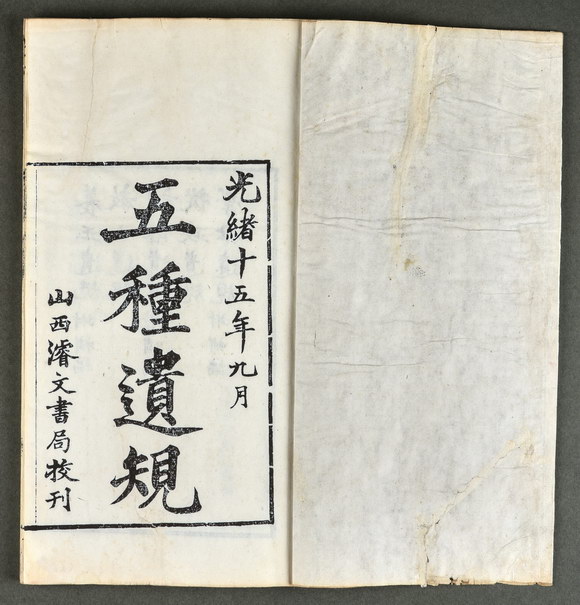 光緒十五年九月
五種遺規
山西濬文書局校刊